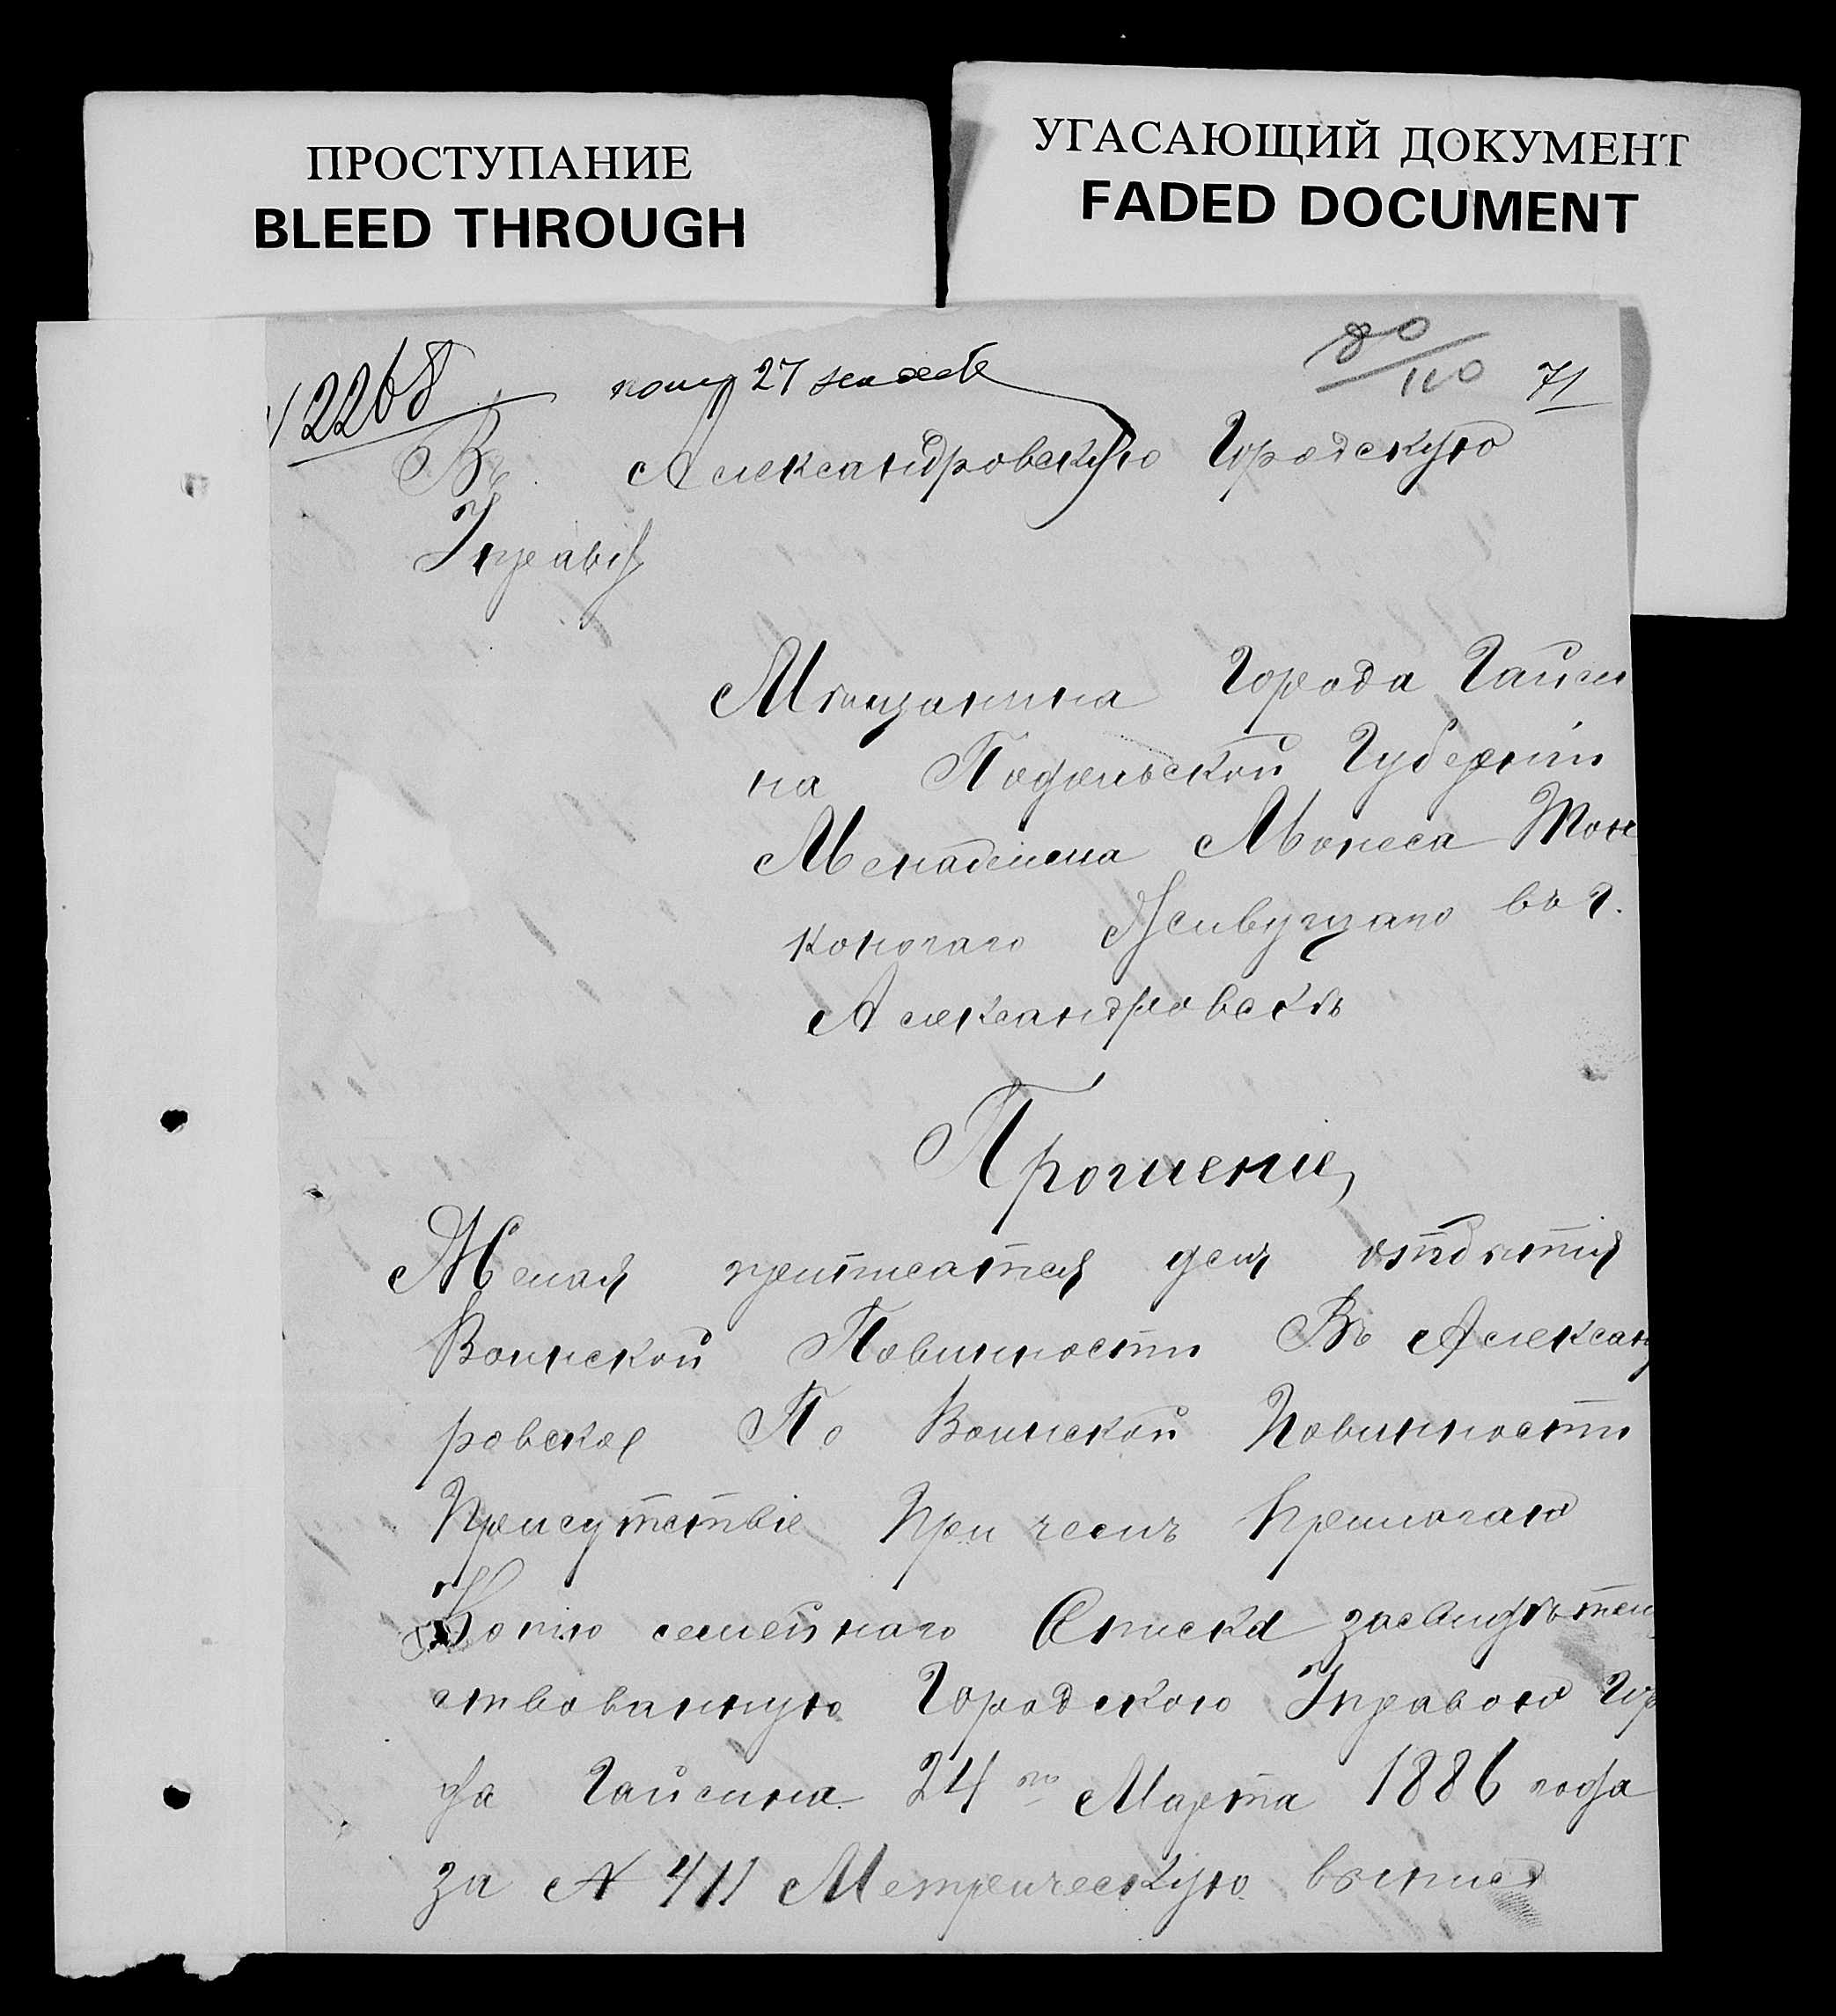 ПРОСТУПАНИЕ
BLEED THROUGH
УГАСАЮЩИЙ ДОКУМЕНТ
FADED DOCUMENT
2268
27
80/110 71
Въ Александровскую Городскую
Управу
Мѣщанина Города Гайси
на Подольской Губерніи
Монеса Тон
коногаго Живущаго въ г.
Александровскѣ
Прошение
Желая приписатся для отбытия
Воинской Повинности Въ Алексан
ровское По Воинской Повинности
Присутствіе При чемъ Прилогаю
Копию семейнаго Списка засвидѣтель
ствованную Городскою Управою Гор
да Гайсина 24го Марта 1886 года
за № 411 Метрическую выпись